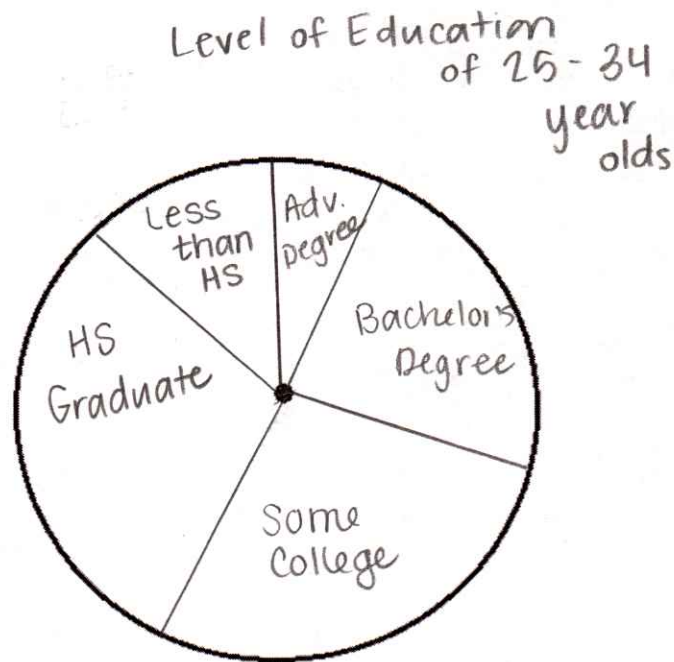 Level of Education
of 25-34
year
olds
Less
than
HS
Adv.
Degree
Bachelor's
Degree
HS
Graduate
Some
College